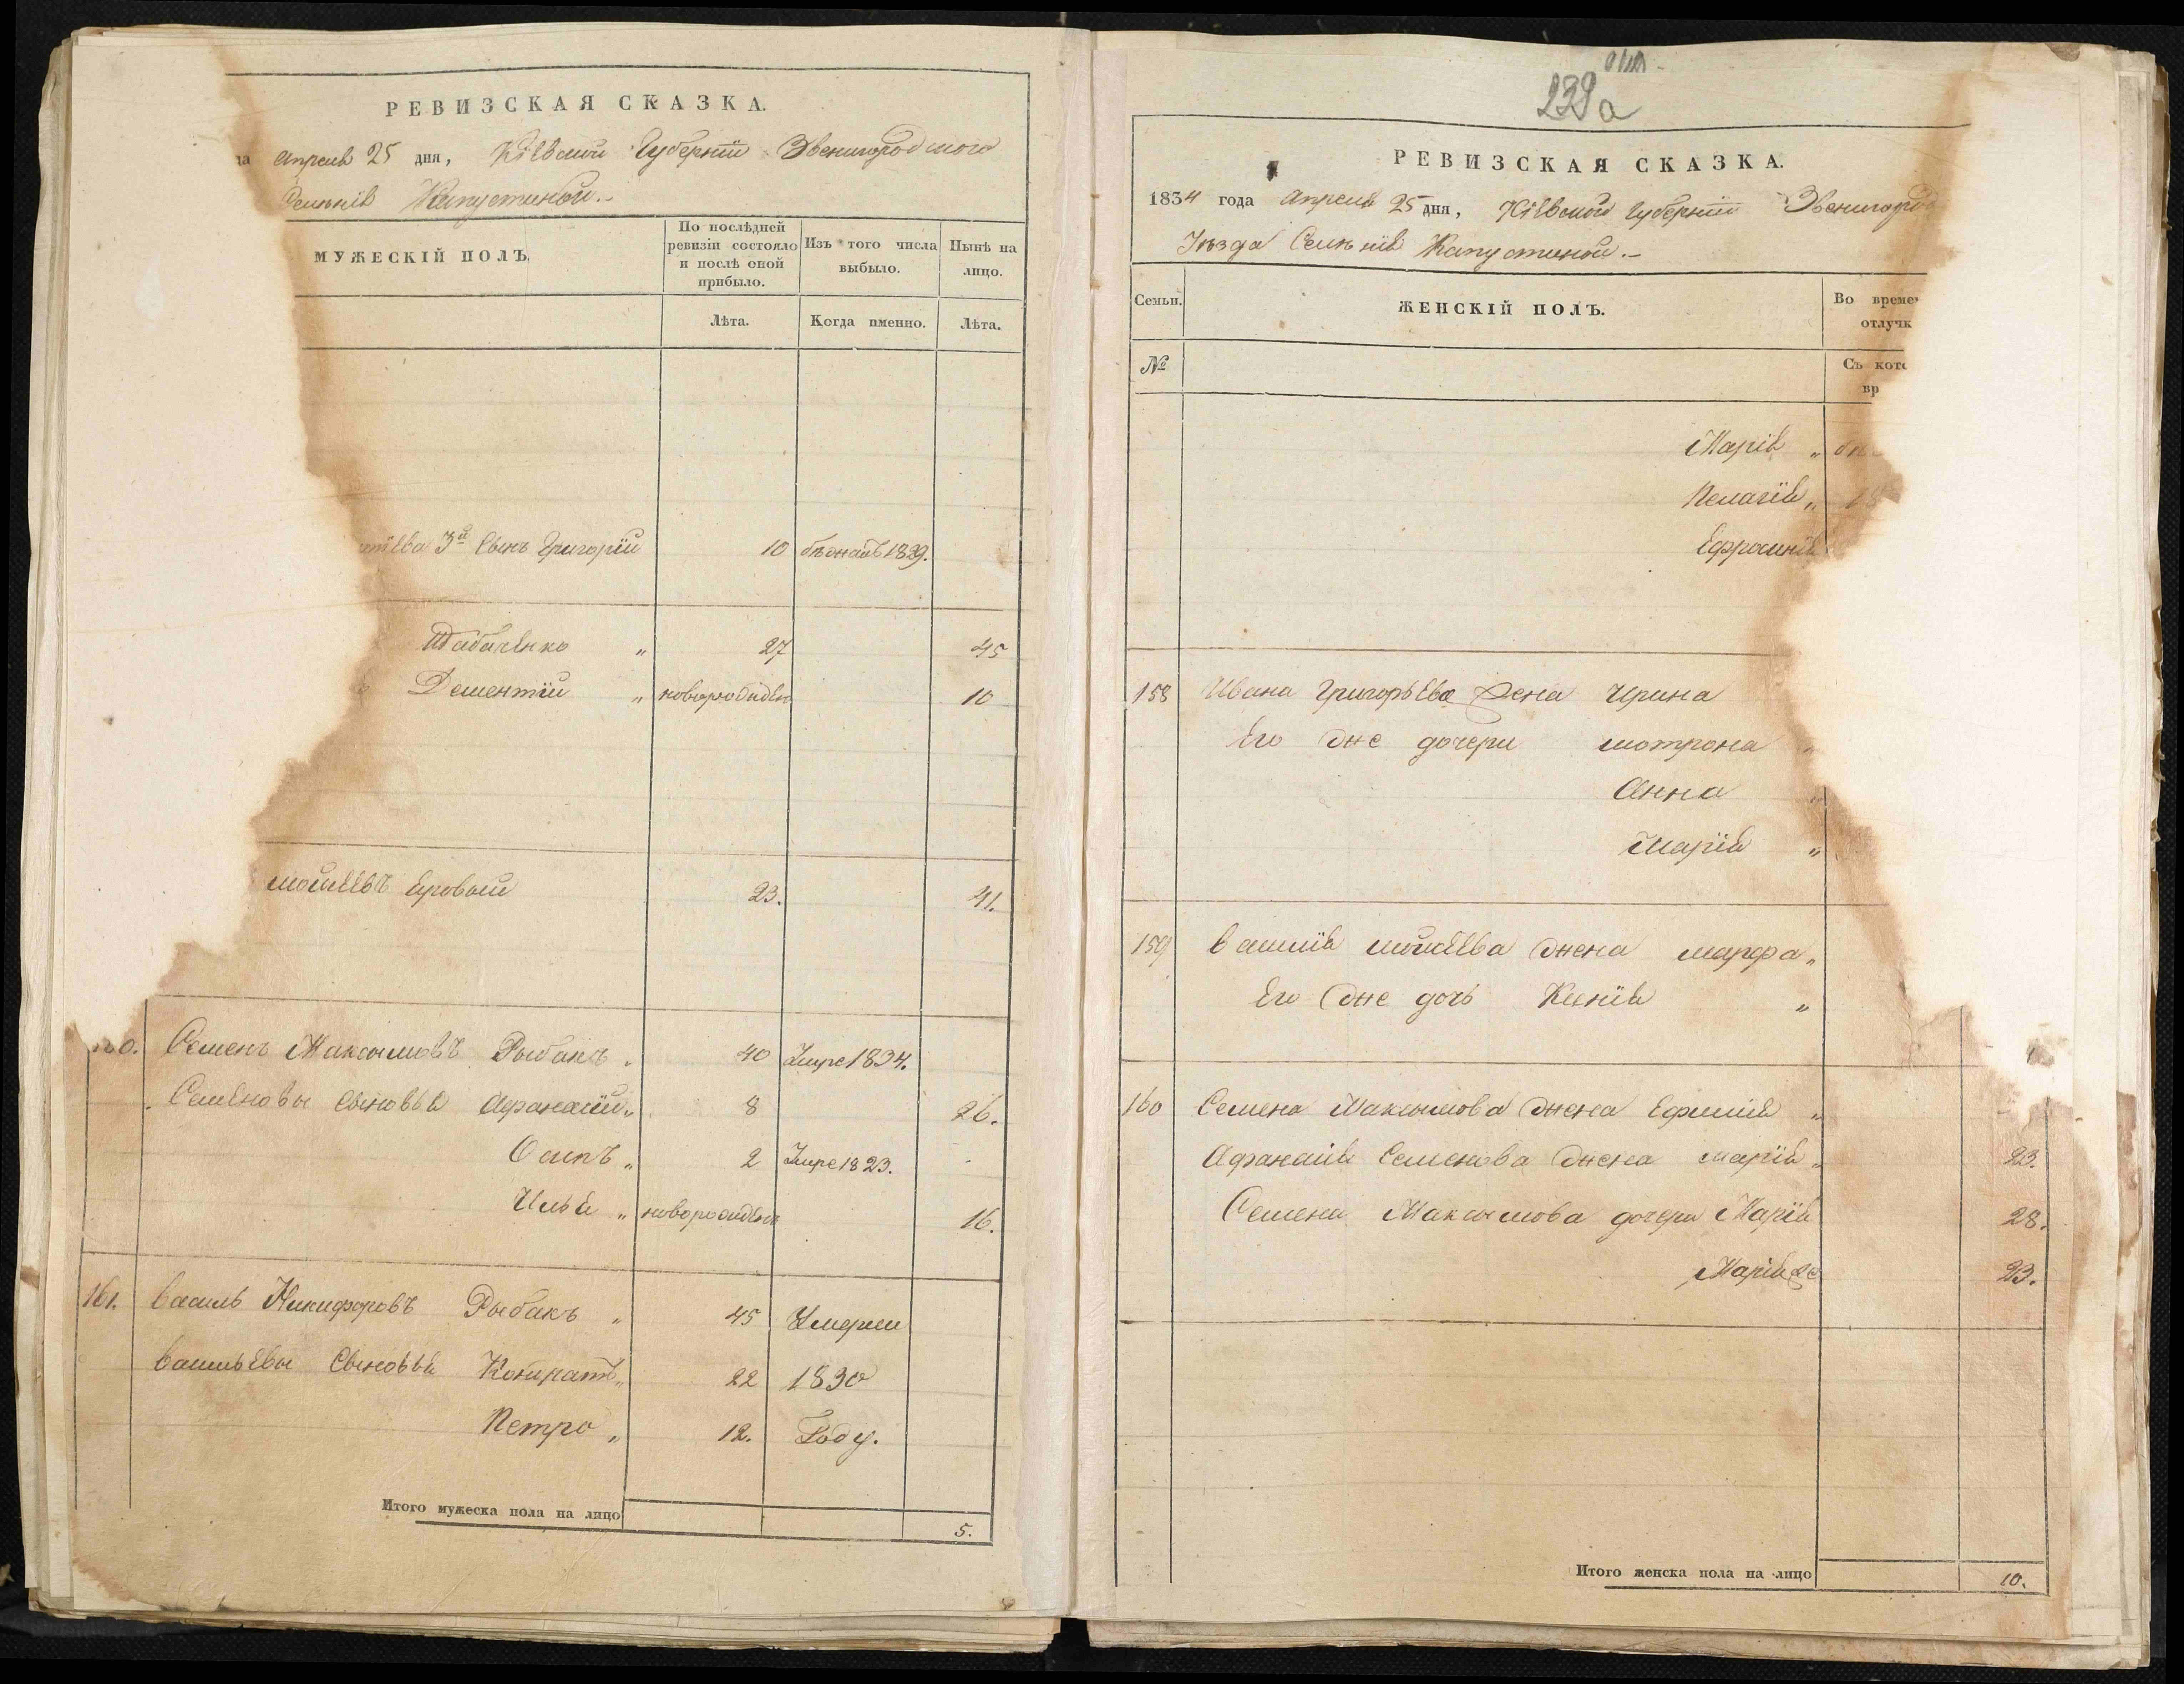 РЕВИЗСКАЯ СКАЗКА.
да Апреля 25 дня, Кіевской Губерніи Звенигородского
Селенія Капустиной.
МУЖЕСКІЙ ПОЛЪ.
По послѣдней ревизіи состояло и послѣ оной прибыло.
Изъ того числа выбыло.
Нынѣ на лицо.
Лѣта.
Когда именно.
Лѣта.
3й Сынъ Григорій 10 1829.
Табаченко " 27 45
Дементій " новорожден 10
Моисеевъ 23. 41.
Семенъ Максимовъ Рыбакъ " 40 Умре 1834.
Семеновы Сыновья Афанасій " 8 26.
Осипъ " 2 Умре 1823.
Илья " новорожден 16.
161. Василь Никифоровъ Рыбакъ " 45 Умерли
Васильевы Сыновья Кондратъ " 22 1830
Петро " 12. Году.
Итого мужеска пола на лицо 5.
239а
РЕВИЗСКАЯ СКАЗКА.
1834 года Апреля 25 дня, Кіевской Губерніи Звенигород
Уѣзда Селенія Капустиной.
Семьи.
ЖЕНСКІЙ ПОЛЪ.
Во времен
отлучк
№
Съ кото
вр
Марія "
Пелагія "
Ефросинія
158 Ивана Григорьева жена Ирина
Его же дочери Мотрона "
Анна "
Марія "
159 Василія Моисеева жена Марфа "
Его же дочь Ксенія "
160 Семена Максимова жена Ефимія "
Афанасія Семенова жена Марія " 23.
Семена Максимова дочери Марія 28.
Марія 2я 23.
Итого женска пола на лицо 10.